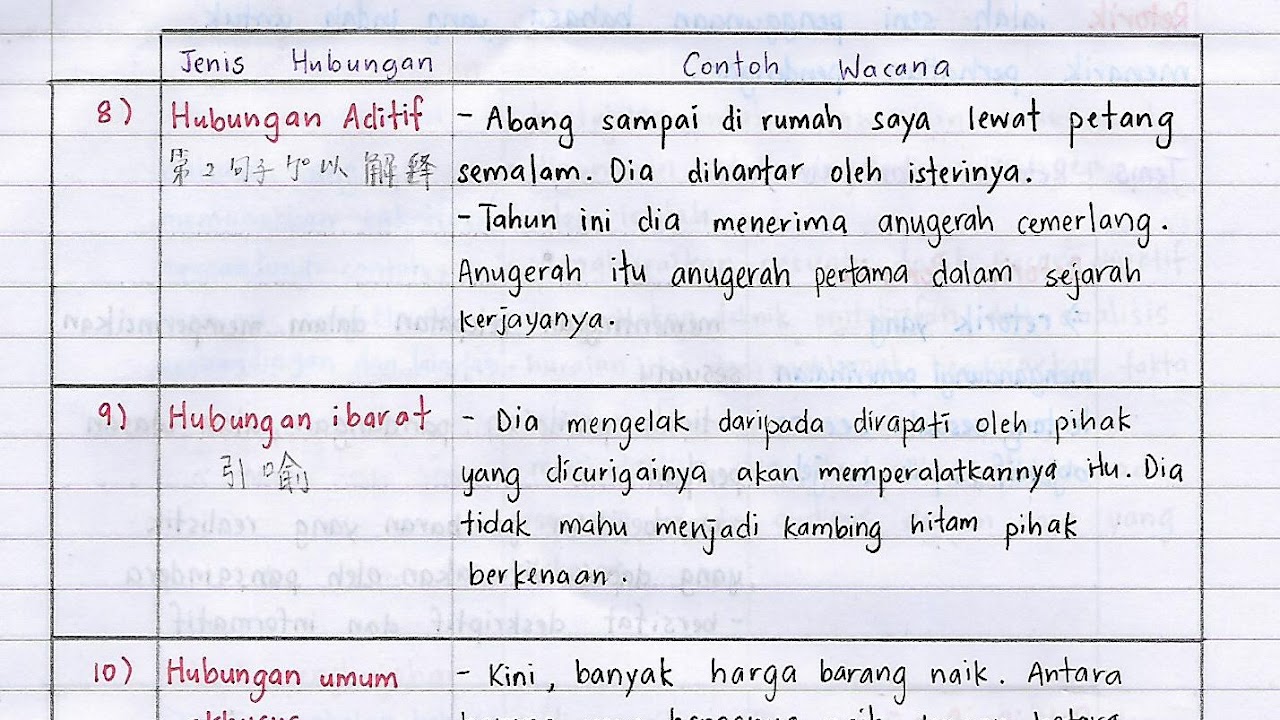 Jenis Hubungan Contoh Wacana
8) Hubungan Aditif - Abang sampai di rumah saya lewat petang
第2句子可以解释 semalam. Dia dihantar oleh isterinya.
- Tahun ini dia menerima anugerah cemerlang.
Anugerah itu anugerah pertama dalam sejarah
kerjayanya.
9) Hubungan ibarat - Dia mengelak daripada dirapati oleh pihak
引喻 yang dicurigainya akan memperalatkannya itu. Dia
tidak mahu menjadi kambing hitam pihak
berkenaan.
10) Hubungan umum - Kini, banyak harga barang naik. Antara